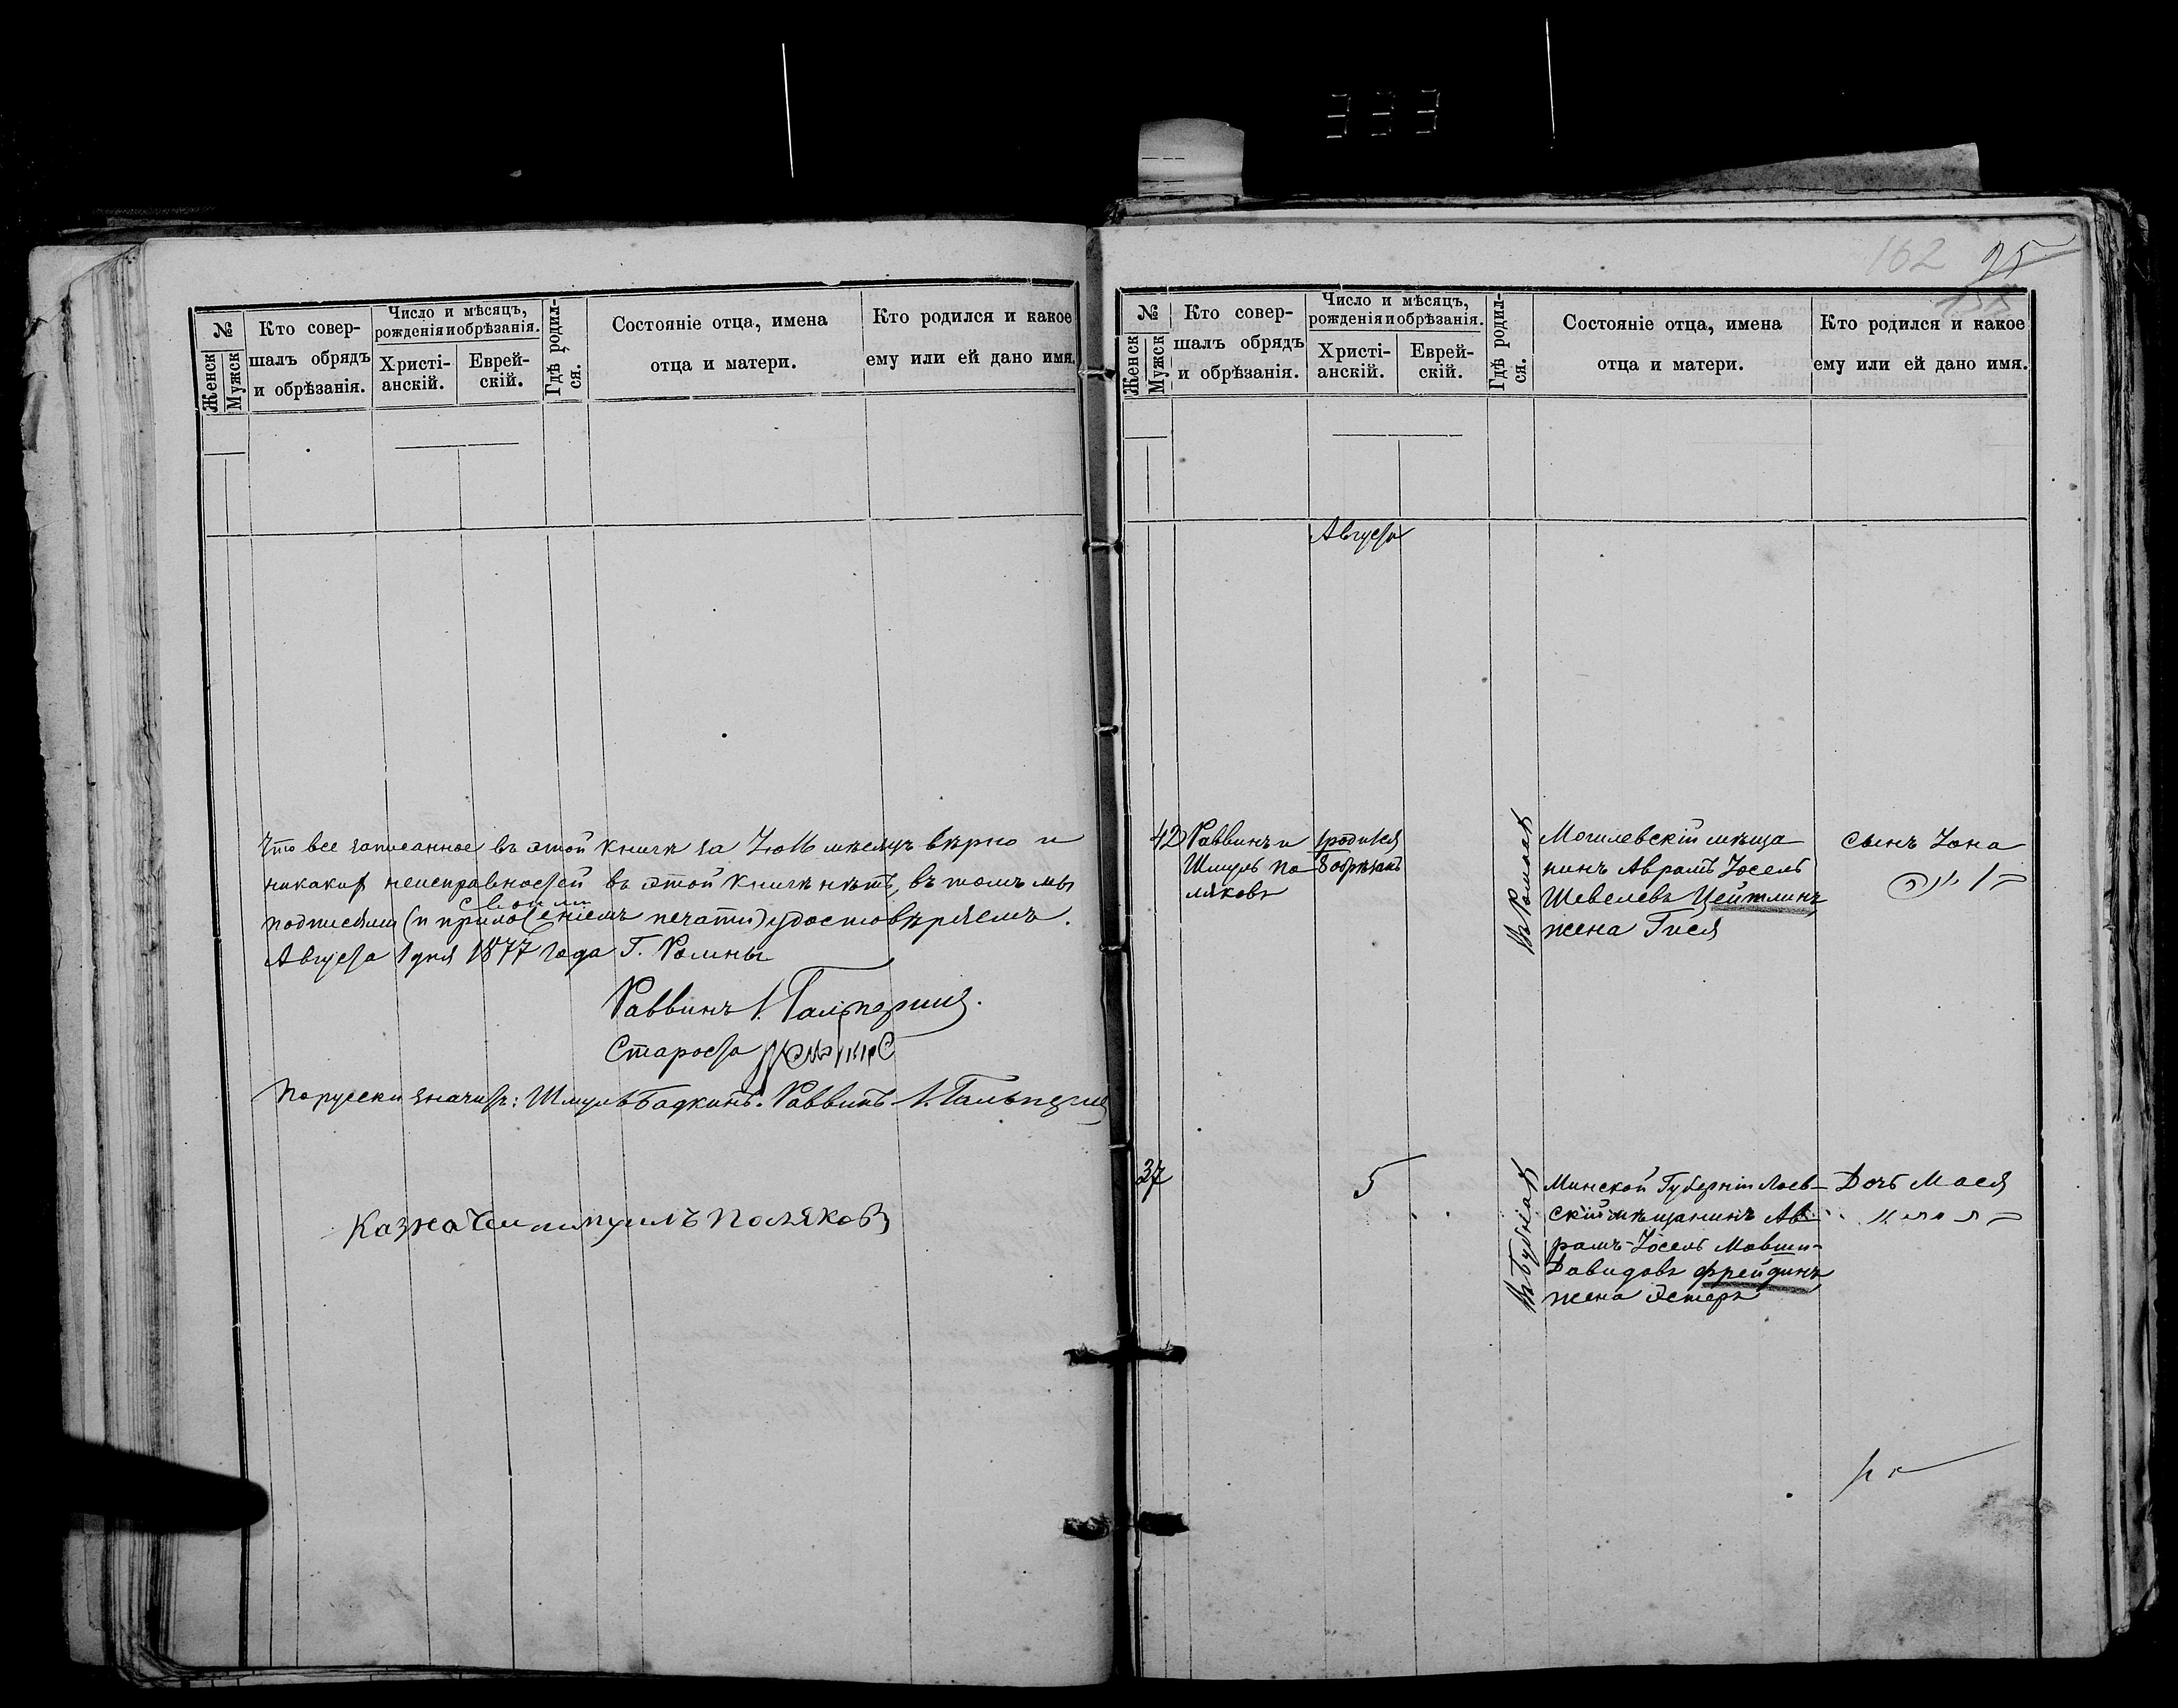 333
№
Женск
Мужск
Кто совер-
шалъ обрядъ
и обрѣзанія.
Число и мѣсяцъ,
рожденія и обрѣзанія.
Христі-
анскій.
Еврей-
скій.
Гдѣ родил-
ся.
Состояніе отца, имена
отца и матери.
Кто родился и какое
ему или ей дано имя.
Что все записанное въ этой книгѣ за Іюль мѣсяцъ вѣрно и
никакихъ неисправностей въ этой книгѣ нѣтъ, въ томъ мы
своими
подписями (и приложеніемъ печати) удостовѣряемъ.
Августа 1 дня 1877 года Г. Ромны
Раввинъ І. Гальперинъ.
Староста
По русски значитъ: Шмуль Бадкинъ. Раввинъ І. Гальперинъ
Казначей Шмуилъ Поляковъ
162 95
№
Женск
Мужск
Кто совер-
шалъ обрядъ
и обрѣзанія.
Число и мѣсяцъ,
рожденія и обрѣзанія.
Христі-
анскій.
Еврей-
скій.
Гдѣ родил-
ся.
Состояніе отца, имена
отца и матери.
Кто родился и какое
ему или ей дано имя.
Августа
42
Раввинъ и
Шмуль По
ляковъ
1 родился
8 обрѣзанъ
въ Ромнахъ
Могилевскій мѣща
нинъ Аврамъ Іосель
Шевелевъ Цейтлинъ
жена Гися
сынъ Іона
37
5
Минской Губерніи Лоев-
скій мѣщанинъ Ав-
рамъ-Іосель Мовши-
Давидовъ Фрейдинъ
жена Эстеръ
Дочь Мася